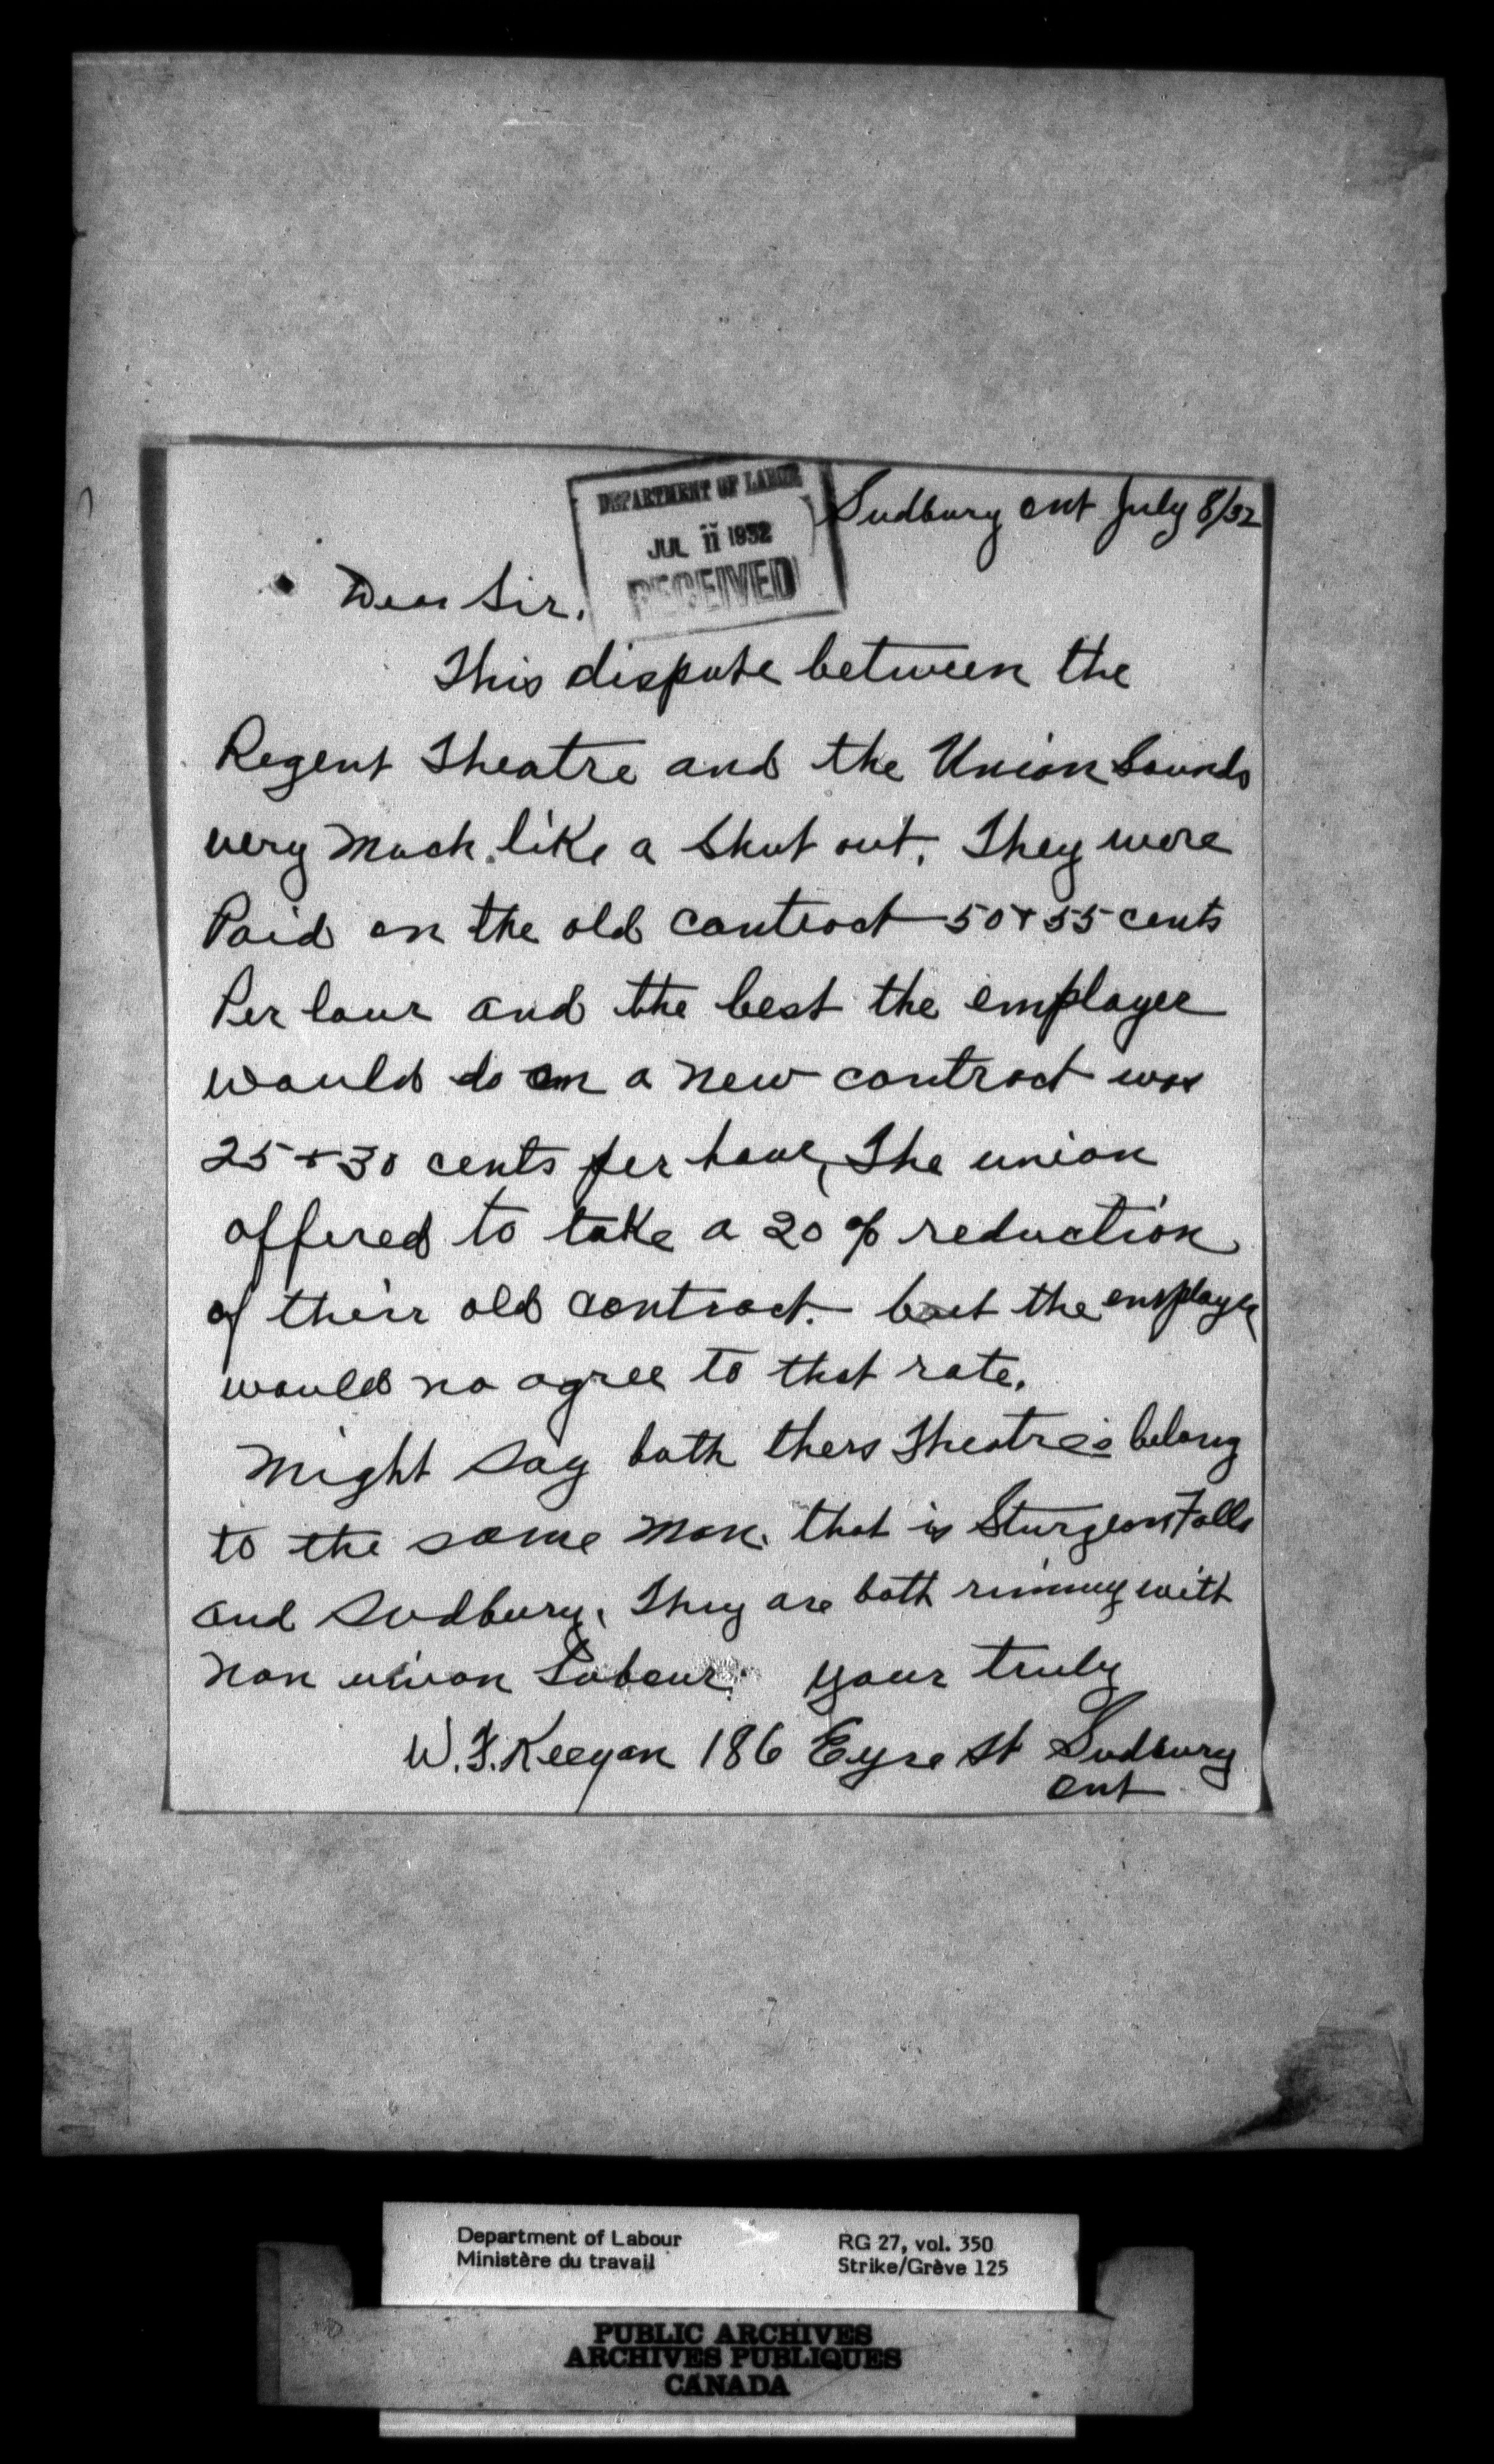 DEPARTMENT OF LABOUR
JUL 11 1932
RECEIVED
Sudbury Ont July 8/32
Dear Sir.
This dispute between the
Regent Theatre and the Union Sounds
very much like a Shut out. They were
Paid on the old contract 50 + 55 cents
Per hour and the best the employer
would do on a new contract was
25 + 30 cents per hour, The union
offered to take a 20% reduction
of their old contract. but the employer
would no agree to that rate.
Might Say both thers Theatres belong
to the same man. that is Sturgeon Falls
and Sudbury. They are both running with
non union Labour. your truly
W. F. Keegan 186 Eyre St Sudbury
Ont
Department of Labour
Ministère du travail
RG 27, vol. 350
Strike/Grève 125
PUBLIC ARCHIVES
ARCHIVES PUBLIQUES
CANADA